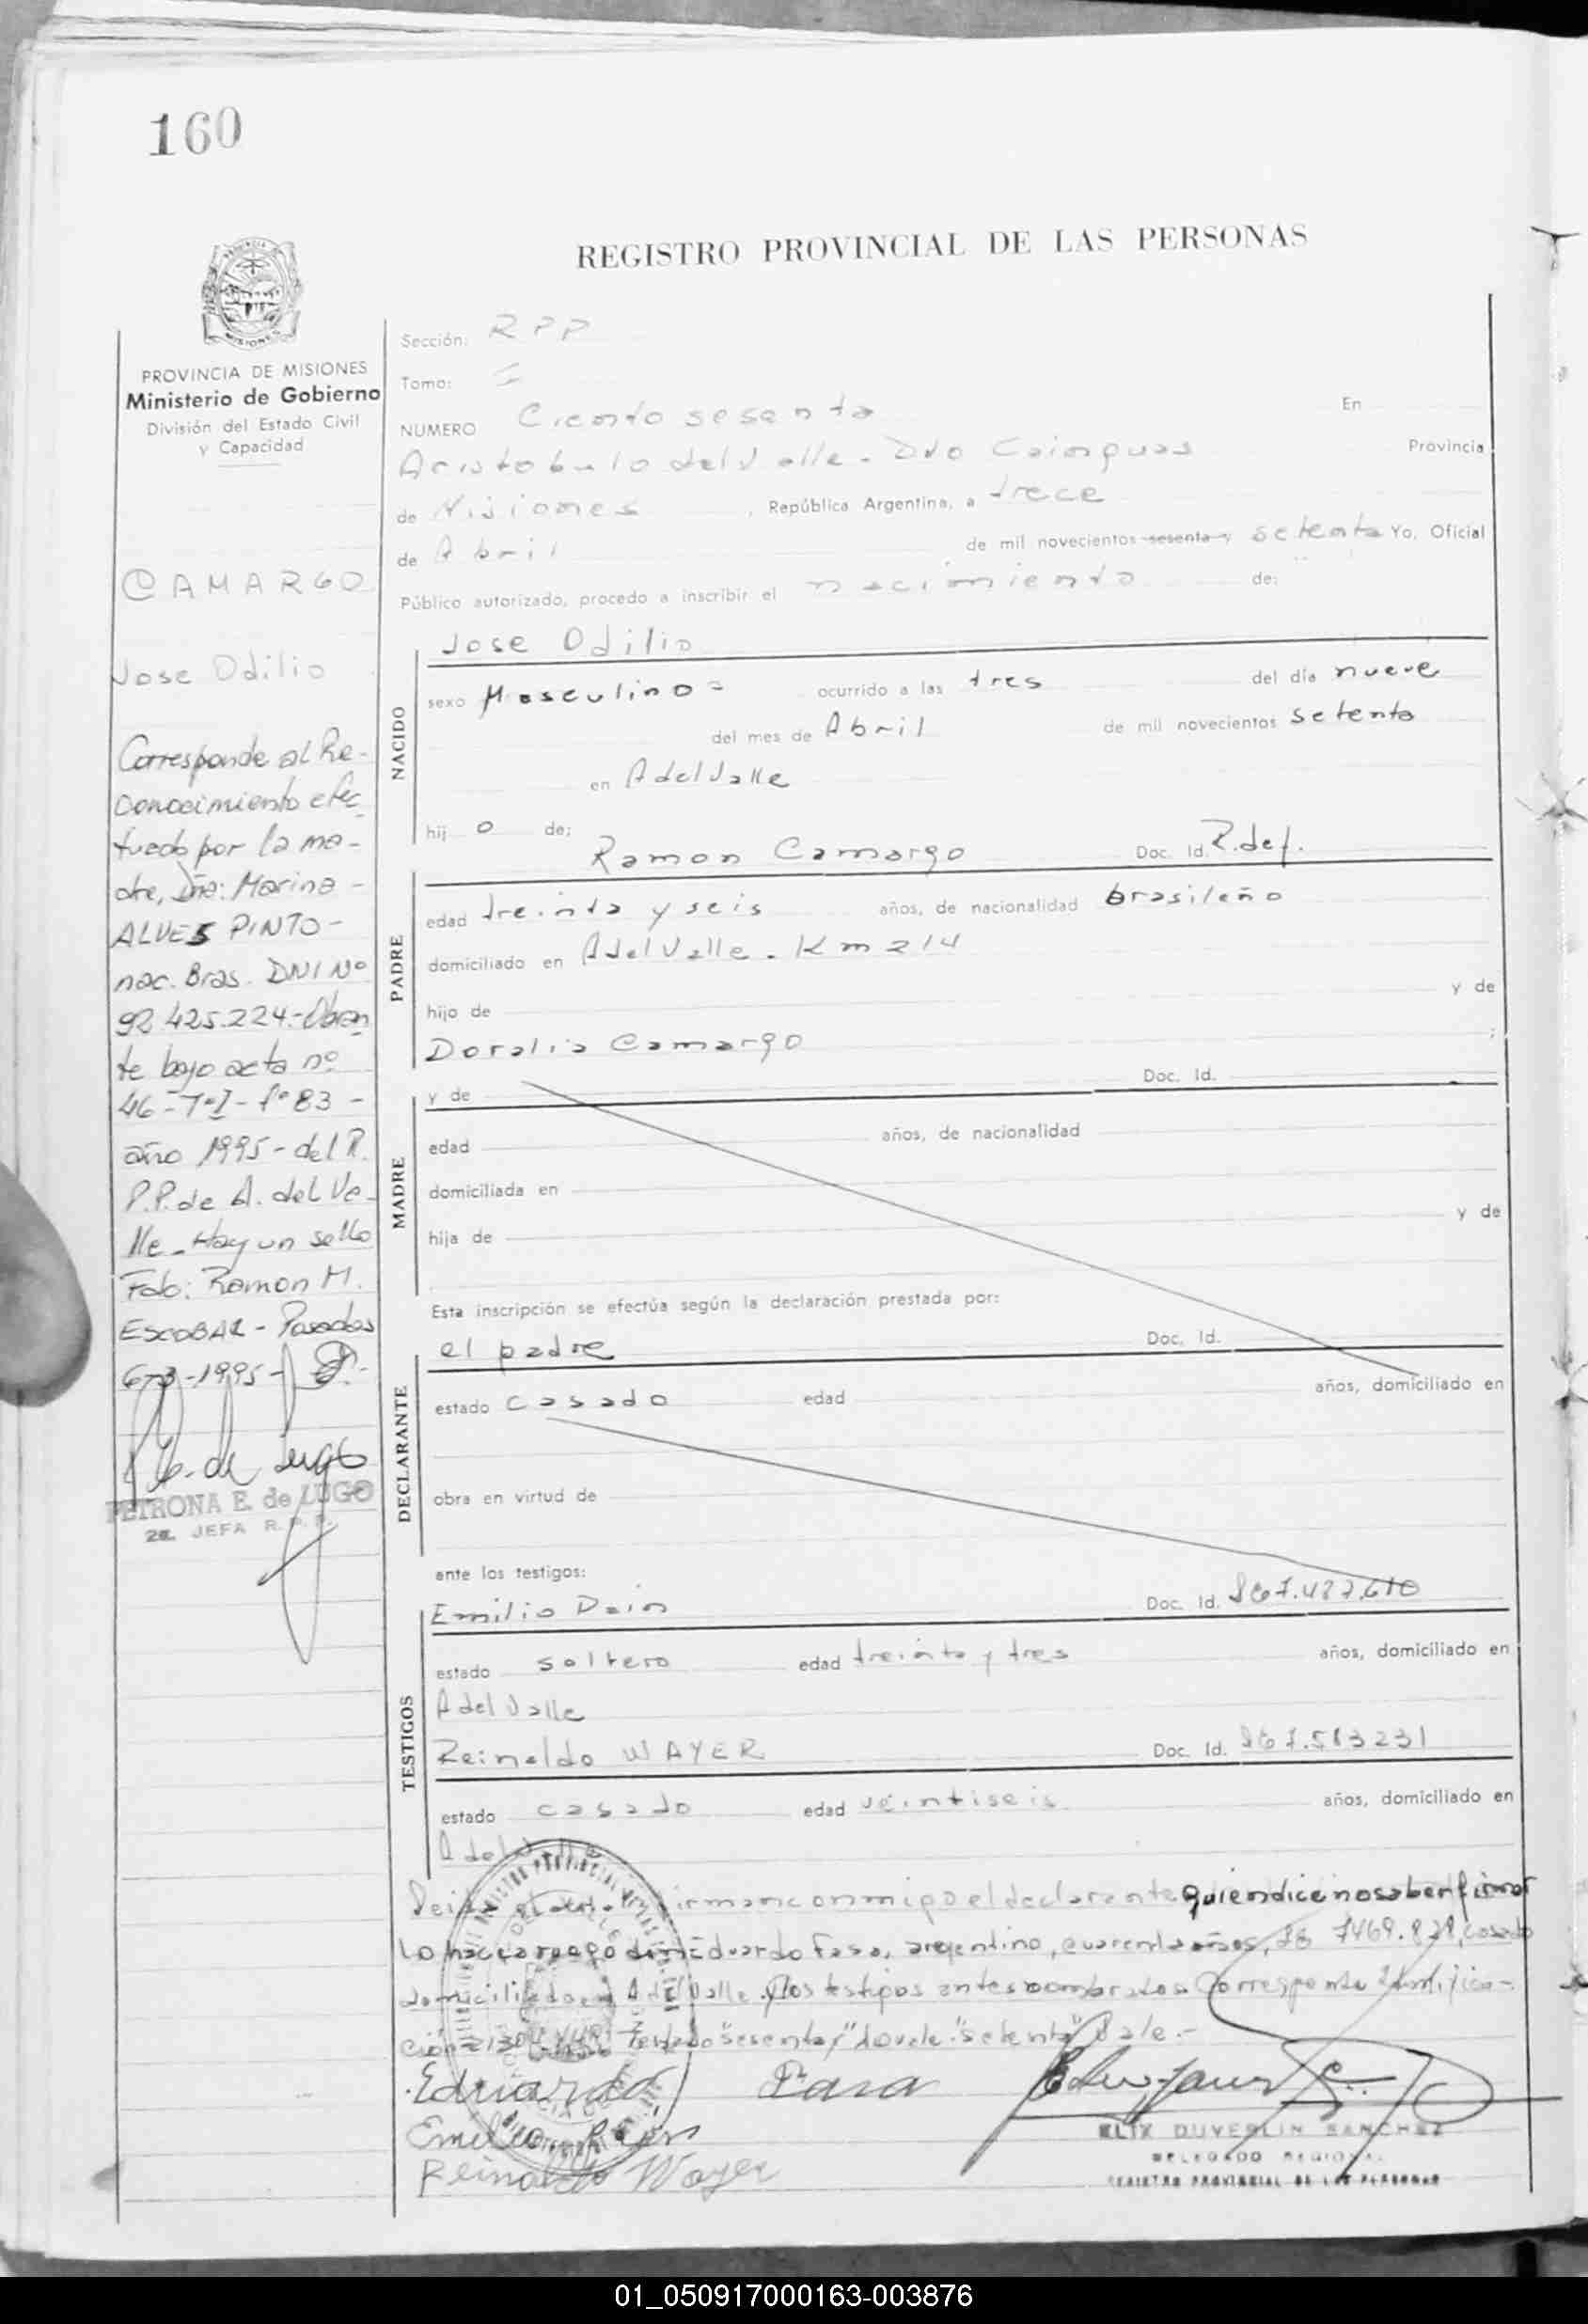 160
REGISTRO PROVINCIAL DE LAS PERSONAS
PROVINCIA DE MISIONES
Ministerio de Gobierno
División del Estado Civil
y Capacidad
CAMARGO
Jose Odilio
Corresponde al Re-
conocimiento efec
tuado por la ma-
dre, Dña: Marina -
ALVES PINTO -
nac. Bras. DNI Nº
92.425.224.- Obran
te bajo acta nº
46 - Tº I - fº 83 -
año 1995 - del R.
P.P. de A. del Va-
lle - Hay un sello
Fdo: Ramon M.
ESCOBAR - Posadas
6-3-1995 -
PETRONA E. de LUGO
2a. JEFA R.P.P.
Sección: RPP
Tomo: I
NUMERO Ciento sesenta En
Aristobulo del Valle - Dto Cainguas Provincia
de Misiones, República Argentina, a trece
de Abril de mil novecientos sesenta y setenta Yo, Oficial
Público autorizado, procedo a inscribir el nacimiento de:
NACIDO
Jose Odilio
sexo Masculino = ocurrido a las tres del día nueve
del mes de Abril de mil novecientos setenta
en A del Valle
hij o de:
PADRE
Ramon Camargo Doc. Id. R. def.
edad treinta y seis años, de nacionalidad brasileño
domiciliado en A del Valle - Km 214
hijo de y de
Doralia Camargo ;
MADRE
y de Doc. Id.
edad años, de nacionalidad
domiciliada en
hija de y de
Esta inscripción se efectúa según la declaración prestada por:
DECLARANTE
el padre Doc. Id.
estado casado edad años, domiciliado en
obra en virtud de
ante los testigos:
TESTIGOS
Emilio Doc. Id. 7.487.610
estado soltero edad treinta y tres años, domiciliado en
A del Valle
Reinaldo WAYER Doc. Id. 7.513231
estado casado edad veintiseis años, domiciliado en
A del Valle
firman conmigo el declarante quien dice no saber firmar
lo hace a ruego don Eduardo Fasa, argentino, cuarenta años, 7469.828, casado
domiciliado en A del Valle y los testigos antes nombrados. Corresponde Identifica-
ción Testado "sesenta y" no vale. "setenta" Vale.-
Eduardo Fasa
Emilio
Reinaldo Wayer
ELIX DUVERLIN SANCHEZ
DELEGADO REGIONAL
REGISTRO PROVINCIAL DE LAS PERSONAS
01_050917000163-003876